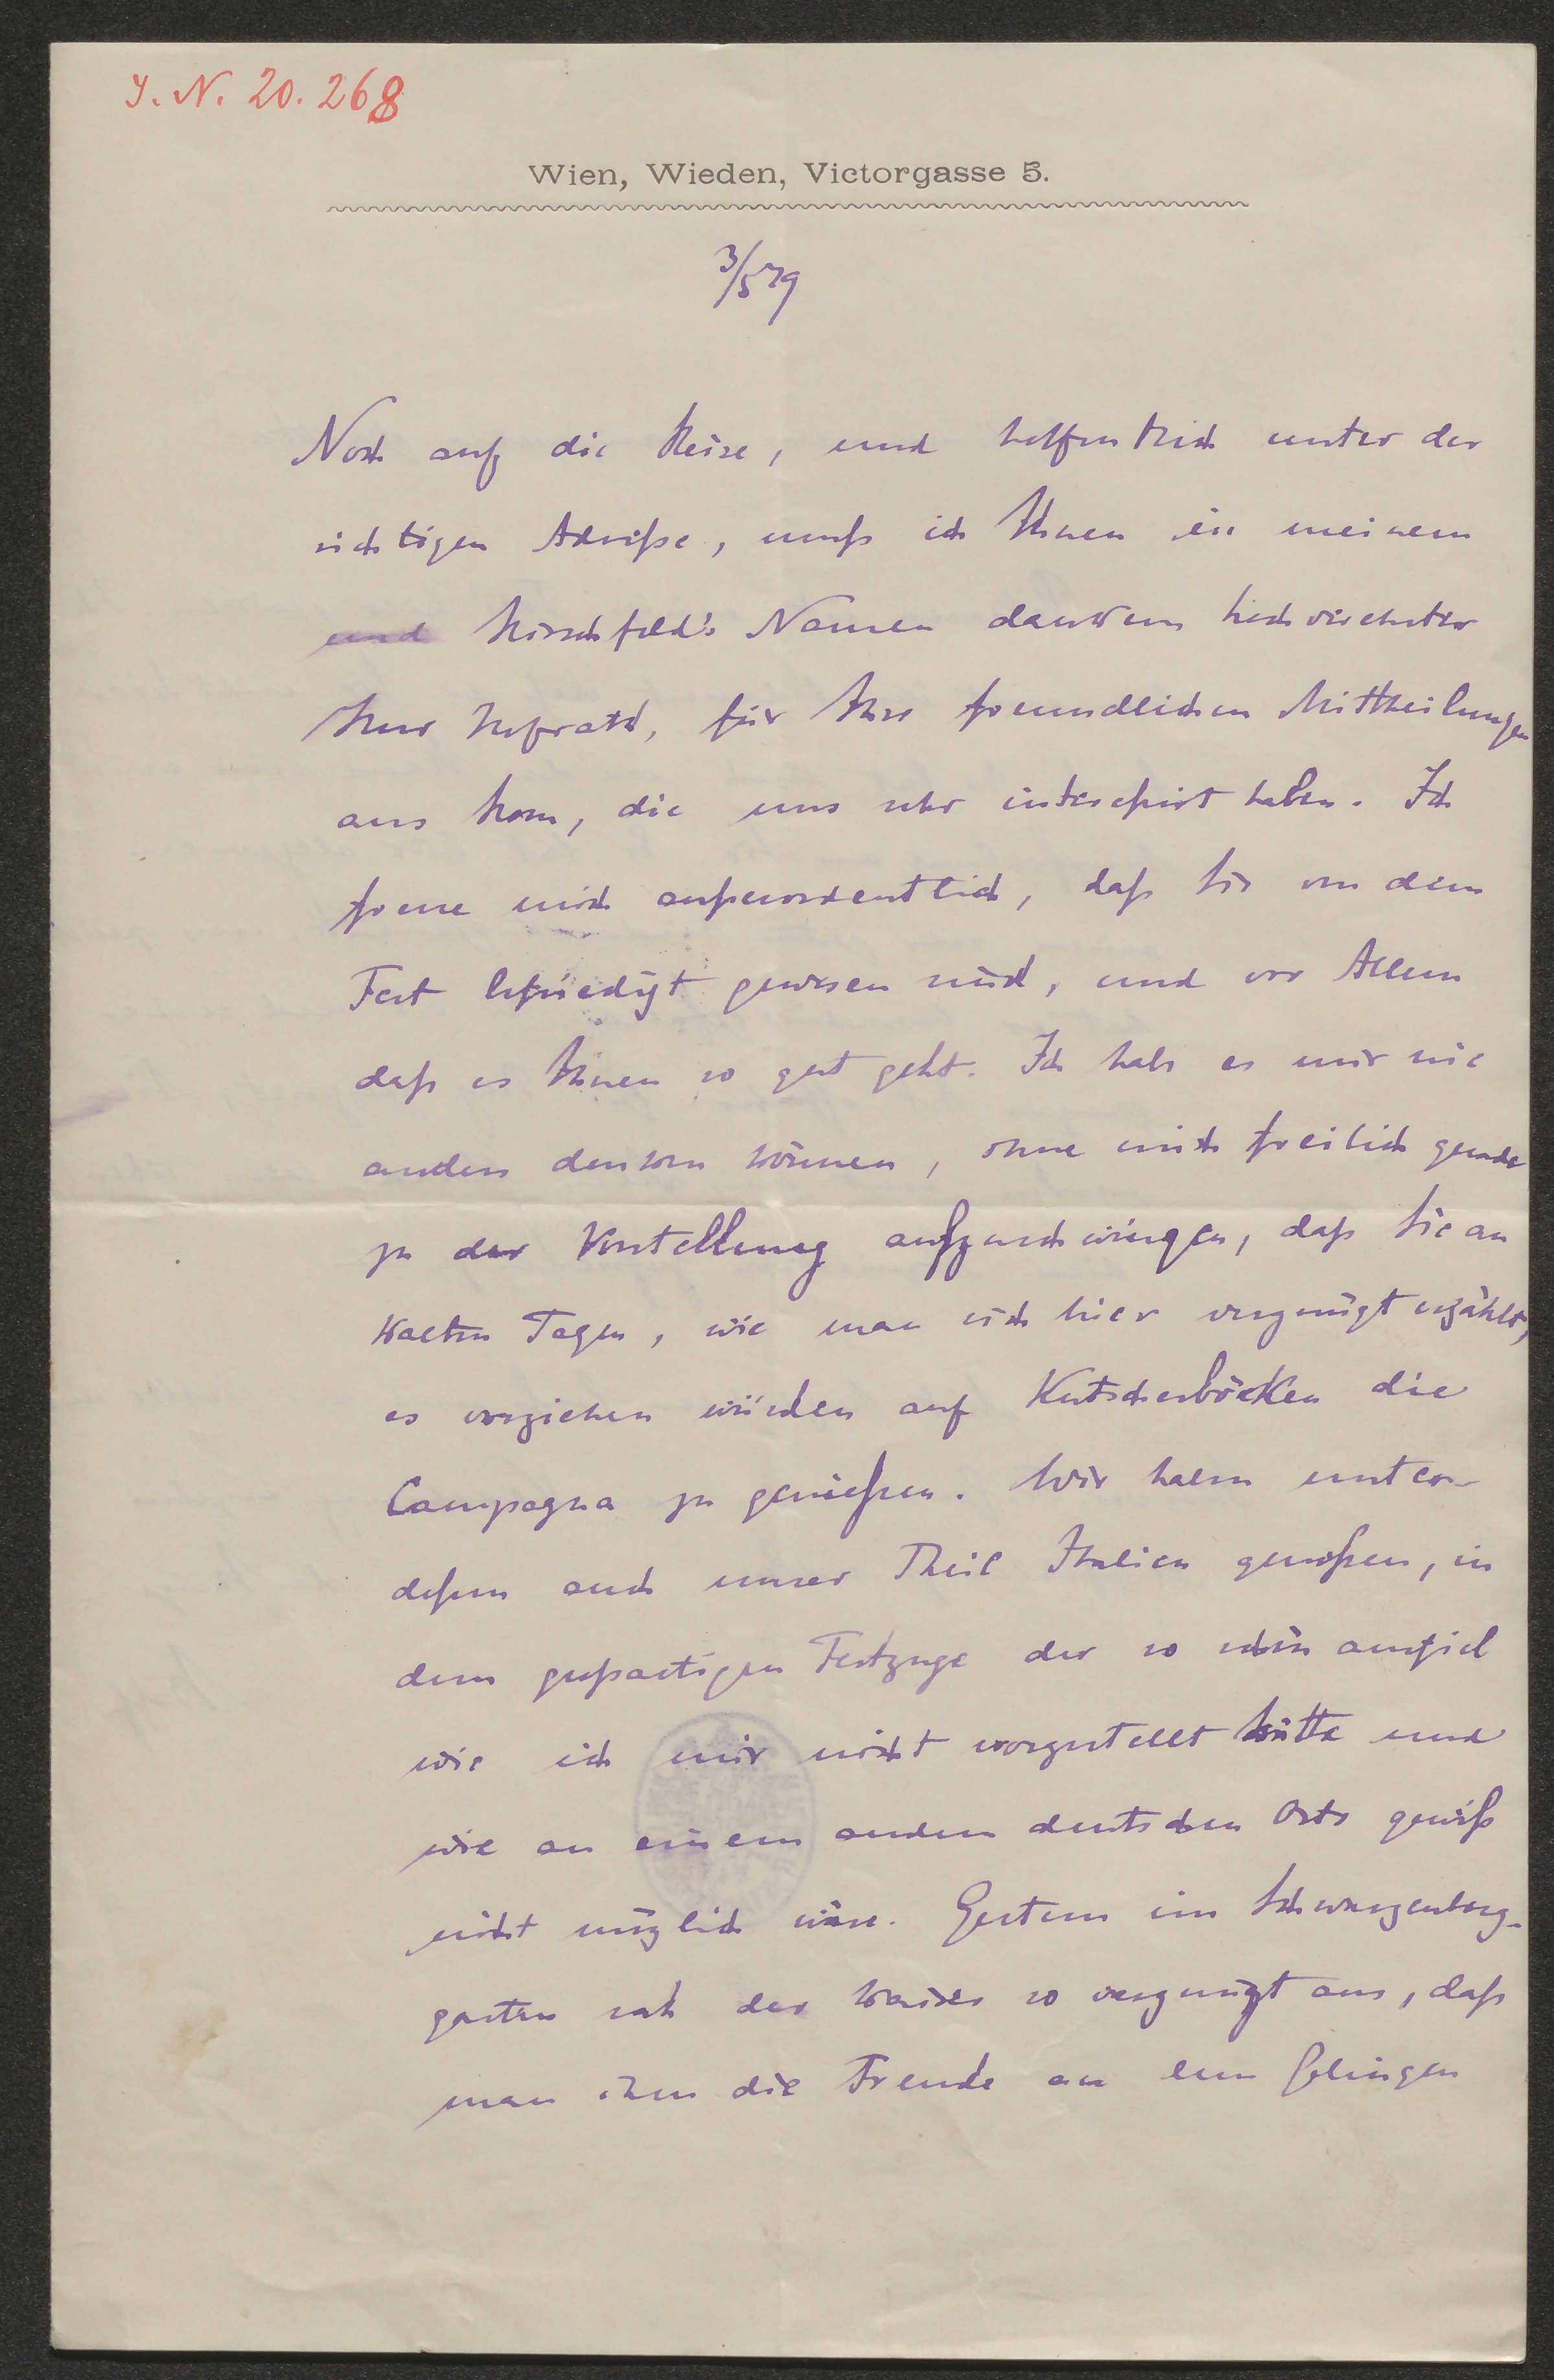 I. N. 20.268
Wien, Wieden, Victorgasse 5.
3/5 79
Noch auf die Reise, und hoffentlich unter der
richtigen Adresse, muß ich Ihnen in meinem
und Hirschfeld's Namen danken hochverehrter
Herr Hofrath, für Ihre freundlichen Mittheilungen
aus Rom, die uns sehr interessirt haben. Ich
freue mich außerordentlich, daß Sie von dem
Fest befriedigt gewesen sind, und vor Allem
daß es Ihnen so gut geht. Ich habe es mir nie
anders denken können, ohne mich freilich gerade
zu der Vorstellung aufzuschwingen, daß Sie an
kalten Tagen, wie man sich hier vergnügt erzählt,
es vorziehen würden auf Kutscherböcken die
Campagna zu genießen. Wir haben unter-
dessen auch unser Theil Italien genossen, in
dem großartigen Festzuge der so schön ausfiel
wie ich mir nicht vorgestellt hätte und
wie an einem andern deutschen Orte gewiß
nicht möglich wäre. Gestern im Schwarzenberg-
garten sah der Kaiser so vergnügt aus, daß
man ihm die Freude an dem Gelingen